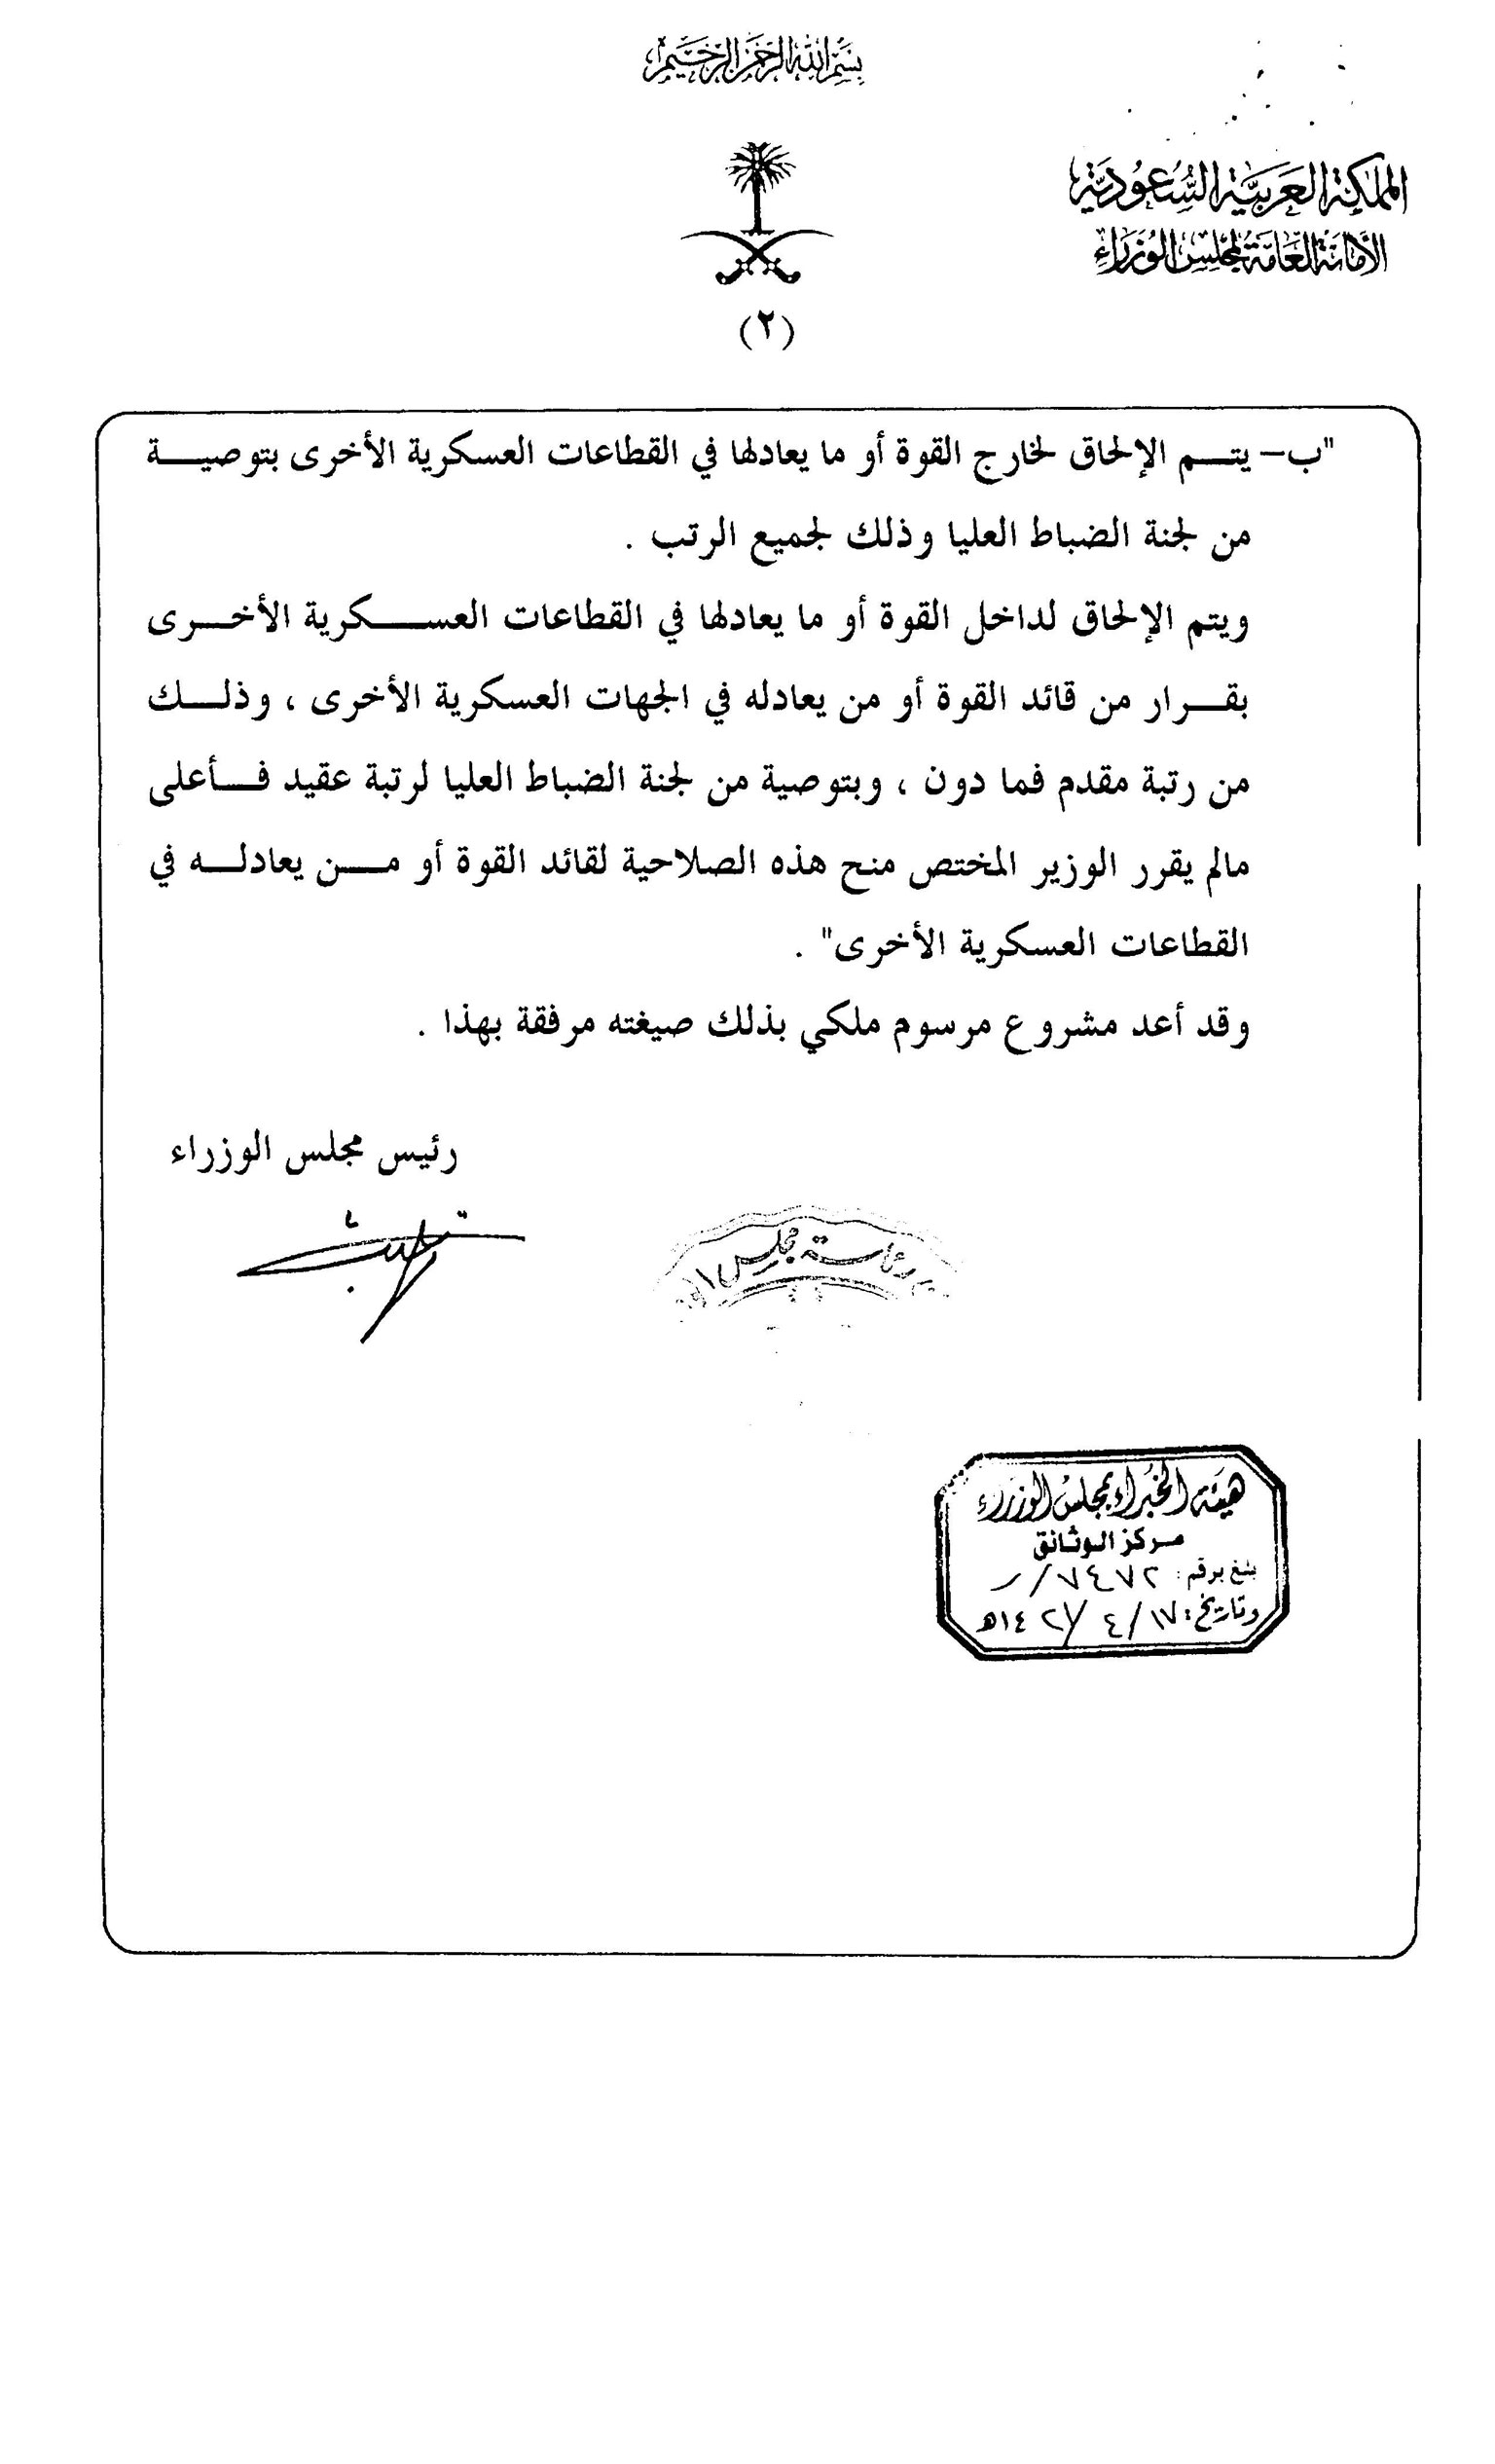 بسم الله الرحمن الرحيم
المملكة العربية السعودية
الأمانة العامة لمجلس الوزراء
(٢)
"ب– يتـــم الإلحاق لخارج القوة أو ما يعادلها في القطاعات العسكرية الأخرى بتوصيـــة
من لجنة الضباط العليا وذلك لجميع الرتب .
ويتم الإلحاق لداخل القوة أو ما يعادلها في القطاعات العســـكرية الأخـــرى
بقـــرار من قائد القوة أو من يعادله في الجهات العسكرية الأخرى ، وذلـــك
من رتبة مقدم فما دون ، وبتوصية من لجنة الضباط العليا لرتبة عقيد فـــأعلى
مالم يقرر الوزير المختص منح هذه الصلاحية لقائد القوة أو مـــن يعادلـــه في
القطاعات العسكرية الأخرى" .
وقد أعد مشروع مرسوم ملكي بذلك صيغته مرفقة بهذا .
رئيس مجلس الوزراء
رئاسة مجلس
هيئة الخبراء بمجلس الوزراء
مركز الوثائق
بلغ برقم: ٧٤٧٢/ر
وتاريخ: ١٧/ ٤/ ١٤٢هـ